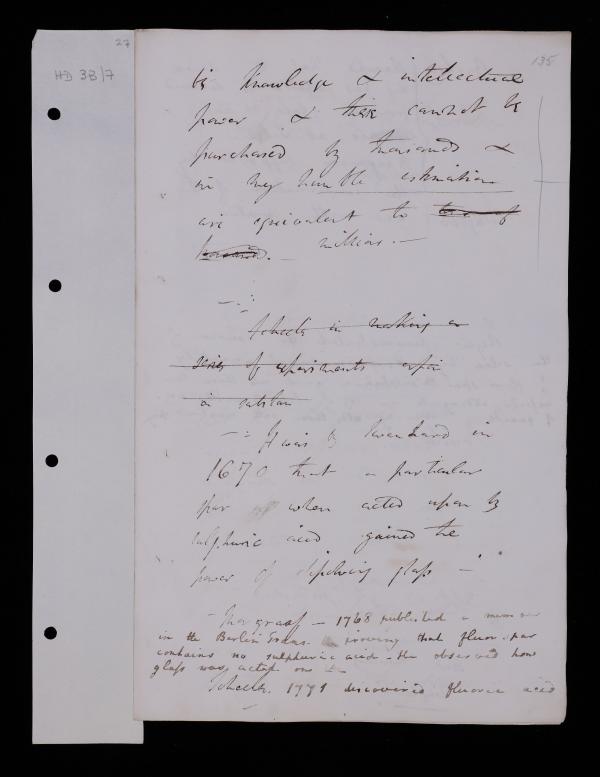 27
HD 3B/7
135
his knowledge & intellectual
power & these cannot be
purchased by thousands &
in my humble estimation
are equivalent to tens of
thousands. — millions. —
Scheele in making a
series of experiments upon
a substan
It was by in
1670 that a particular
spar when acted upon by
sulphuric acid gained the
power of dissolving glass —
Margraaf — 1768 published a memoir
in the Berlin Trans. proving that fluor spar
contains no sulphuric acid - he observed how
glass was acted on
Scheele. 1771 discovered fluoric acid